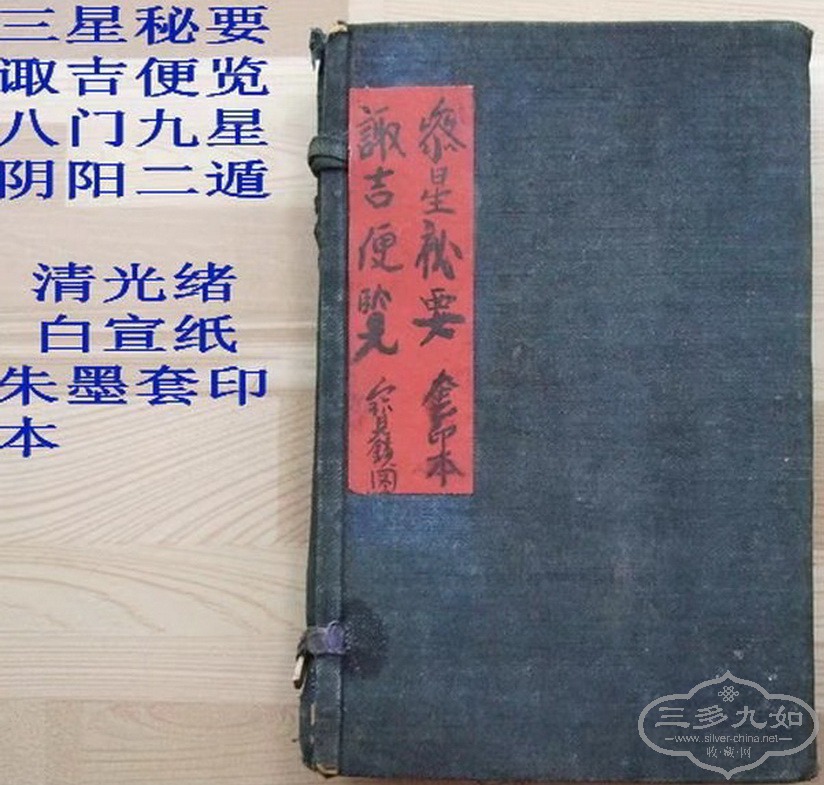 三星秘要
诹吉便览
八门九星
阴阳二遁
清光绪
白宣纸
朱墨套印
本
叅星祕要 套印本
諏吉便覽 寶鏡圖
三多九如
www.silver-china.net
收·藏·网